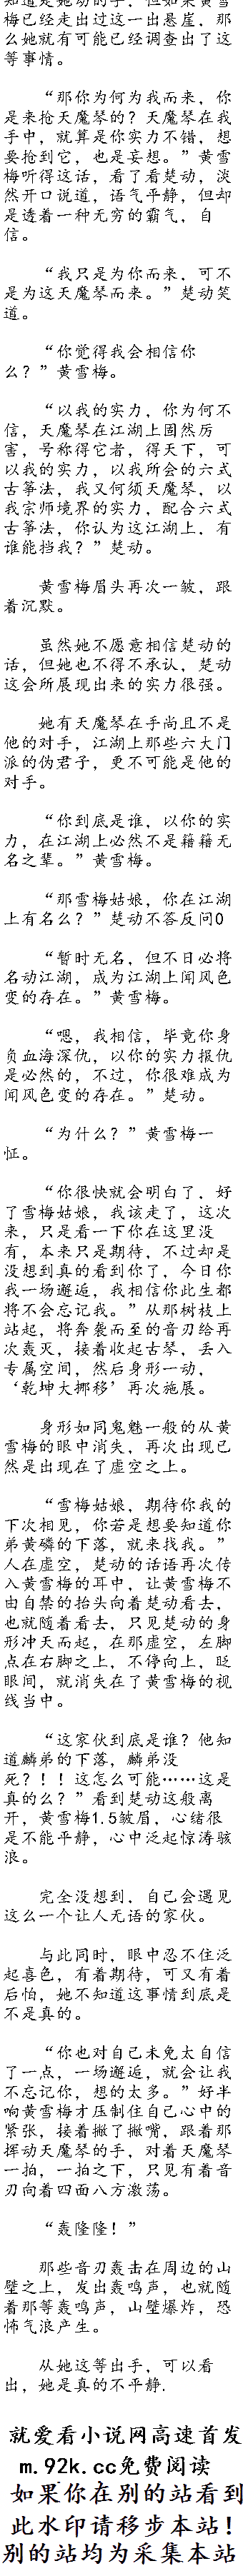 知道是她动的手，但如果黄雪
梅已经走出过这一出悬崖，那
么她就有可能已经调查出了这
等事情。
“那你为何为我而来，你
是来抢天魔琴的？天魔琴在我
手中，就算是你实力不错，想
要抢到它，也是妄想。”黄雪
梅听得这话，看了看楚动，淡
然开口说道，语气平静，但却
是透着一种无穷的霸气，自
信。
“我只是为你而来，可不
是为这天魔琴而来。”楚动笑
道。
“你觉得我会相信你
么？”黄雪梅。
“以我的实力，你为何不
信，天魔琴在江湖上固然厉
害，号称得它者，得天下，可
以我的实力，以我所会的六式
古筝法，我又何须天魔琴，以
我宗师境界的实力，配合六式
古筝法，你认为这江湖上，有
谁能挡我？”楚动。
黄雪梅眉头再次一皱，跟
着沉默。
虽然她不愿意相信楚动的
话，但她也不得不承认，楚动
这会所展现出来的实力很强。
她有天魔琴在手尚且不是
他的对手，江湖上那些六大门
派的伪君子，更不可能是他的
对手。
“你到底是谁，以你的实
力，在江湖上必然不是籍籍无
名之辈。”黄雪梅。
“那雪梅姑娘，你在江湖
上有名么？”楚动不答反问0
“暂时无名，但不日必将
名动江湖，成为江湖上闻风色
变的存在。”黄雪梅。
“嗯，我相信，毕竟你身
负血海深仇，以你的实力报仇
是必然的，不过，你很难成为
闻风色变的存在。”楚动。
“为什么？”黄雪梅一
怔。
“你很快就会明白了，好
了雪梅姑娘，我该走了，这次
来，只是看一下你在这里没
有，本来只是期待，不过却是
没想到真的看到你了，今日你
我一场邂逅，我相信你此生都
将不会忘记我。”从那树枝上
站起，将奔袭而至的音刃给再
次轰灭，接着收起古琴，丢入
专属空间，然后身形一动，
‘乾坤大挪移’再次施展。
身形如同鬼魅一般的从黄
雪梅的眼中消失，再次出现已
然是出现在了虚空之上。
“雪梅姑娘，期待你我的
下次相见，你若是想要知道你
弟黄麟的下落，就来找我。”
人在虚空，楚动的话语再次传
入黄雪梅的耳中，让黄雪梅不
由自禁的抬头向着楚动看去，
也就随着看去，只见楚动的身
形冲天而起，在那虚空，左脚
点在右脚之上，不停向上，眨
眼间，就消失在了黄雪梅的视
线当中。
“这家伙到底是谁？他知
道麟弟的下落，麟弟没
死？！！这怎么可能……这是
真的么？”看到楚动这般离
开，黄雪梅1.5皱眉，心绪很
是不能平静，心中泛起惊涛骇
浪。
完全没想到，自己会遇见
这么一个让人无语的家伙。
与此同时，眼中忍不住泛
起喜色，有着期待，可又有着
后怕，她不知道这事情到底是
不是真的。
“你也对自己未免太自信
了一点，一场邂逅，就会让我
不忘记你，想的太多。”好半
响黄雪梅才压制住自己心中的
紧张，接着撇了撇嘴，跟着那
挥动天魔琴的手，对着天魔琴
一拍，一拍之下，只见有着音
刃向着四面八方激荡。
“轰隆隆！”
那些音刃轰击在周边的山
壁之上，发出轰鸣声，也就随
着那等轰鸣声，山壁爆炸，恐
怖气浪产生。
从她这等出手，可以看
出，她是真的不平静.
就爱看小说网高速首发
m.92k.cc免费阅读
如果你在别的站看到
此水印请移步本站！
别的站均为采集本站